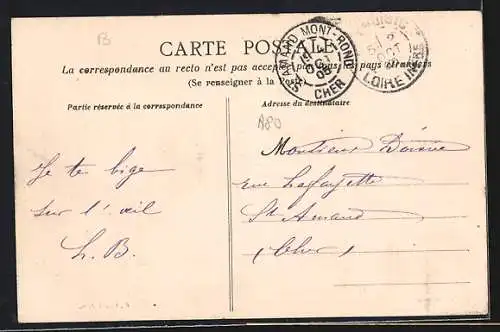 CARTE POSTALE
La correspondance au recto n'est pas acceptée par tous les pays étrangers
(Se renseigner à la Poste)
Partie réservée à la correspondance
Adresse du destinataire
ST AMAND MONT-ROND
CHER
LOIRE INFRE
A80
Je te bige
sur l'œil
L. B.
Monsieur
rue Lafayette
St Amand
(Cher)